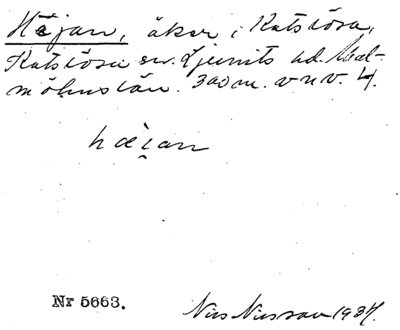 Häjan, åker i Katslösa,
Katslösa sn. Ljunits hd. Mal-
möhus län. 300 m. v n v. 4.
hæi̯an
Nr 5663. Nils Nilsson 1934.